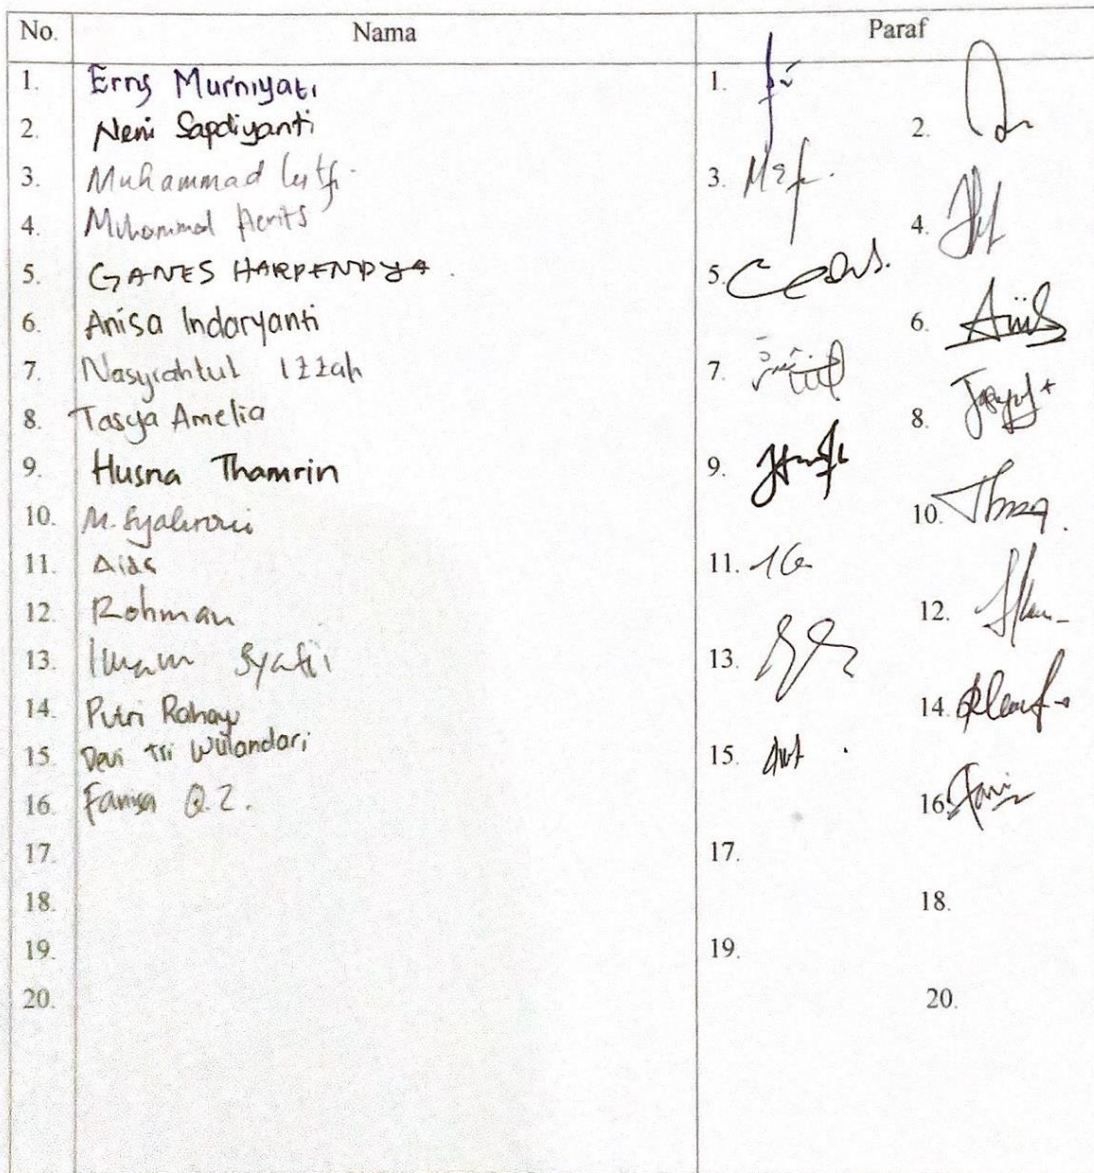 No. Nama Paraf
1. Erny Murniyati 1.
2. Neni Sapdiyanti 2.
3. Muhammad lutfi 3.
4. Muhammad Harits 4.
5. GANES HARPENDYA. 5.
6. Anisa Indaryanti 6.
7. Nasyrahtul Izzah 7.
8. Tasya Amelia 8.
9. Husna Thamrin 9.
10. M. Syahroni 10.
11. Aida 11.
12. Rohman 12.
13. Imam Syafii 13.
14. Putri Rahayu 14.
15. Devi Tri Wulandari 15.
16. Fanisa Q.Z. 16.
17. 17.
18. 18.
19. 19.
20. 20.